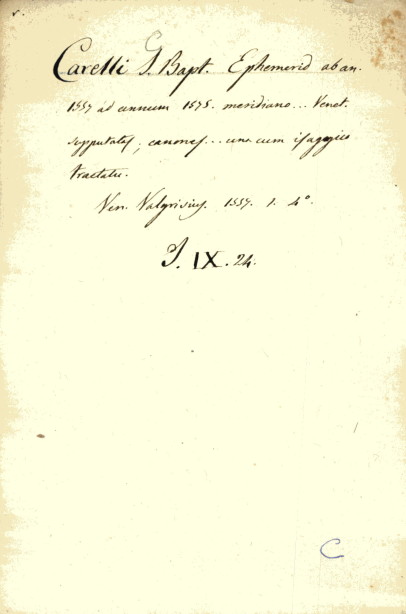 Carelli J. Bapt. Ephemerid ab an.
1557 ad annum 1575. meridiano... Venet.
supputatę, canones... una cum isagogico
tractatu.
Ven. Valgrisius. 1557. 1. 4°.
J. IX. 24.
C